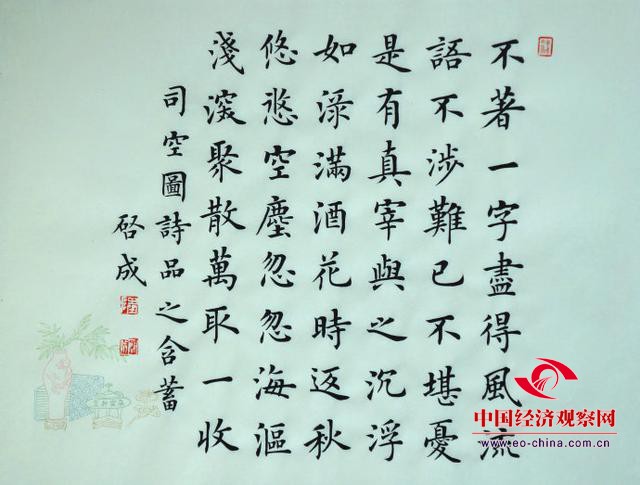 不著一字盡得風流
語不涉難已不堪憂
是有真宰與之沉浮
如淥滿酒花時返秋
悠悠空塵忽忽海漚
淺深聚散萬取一收
司空圖詩品之含蓄
啓成
中国经济观察网
www.eo-china.com.cn